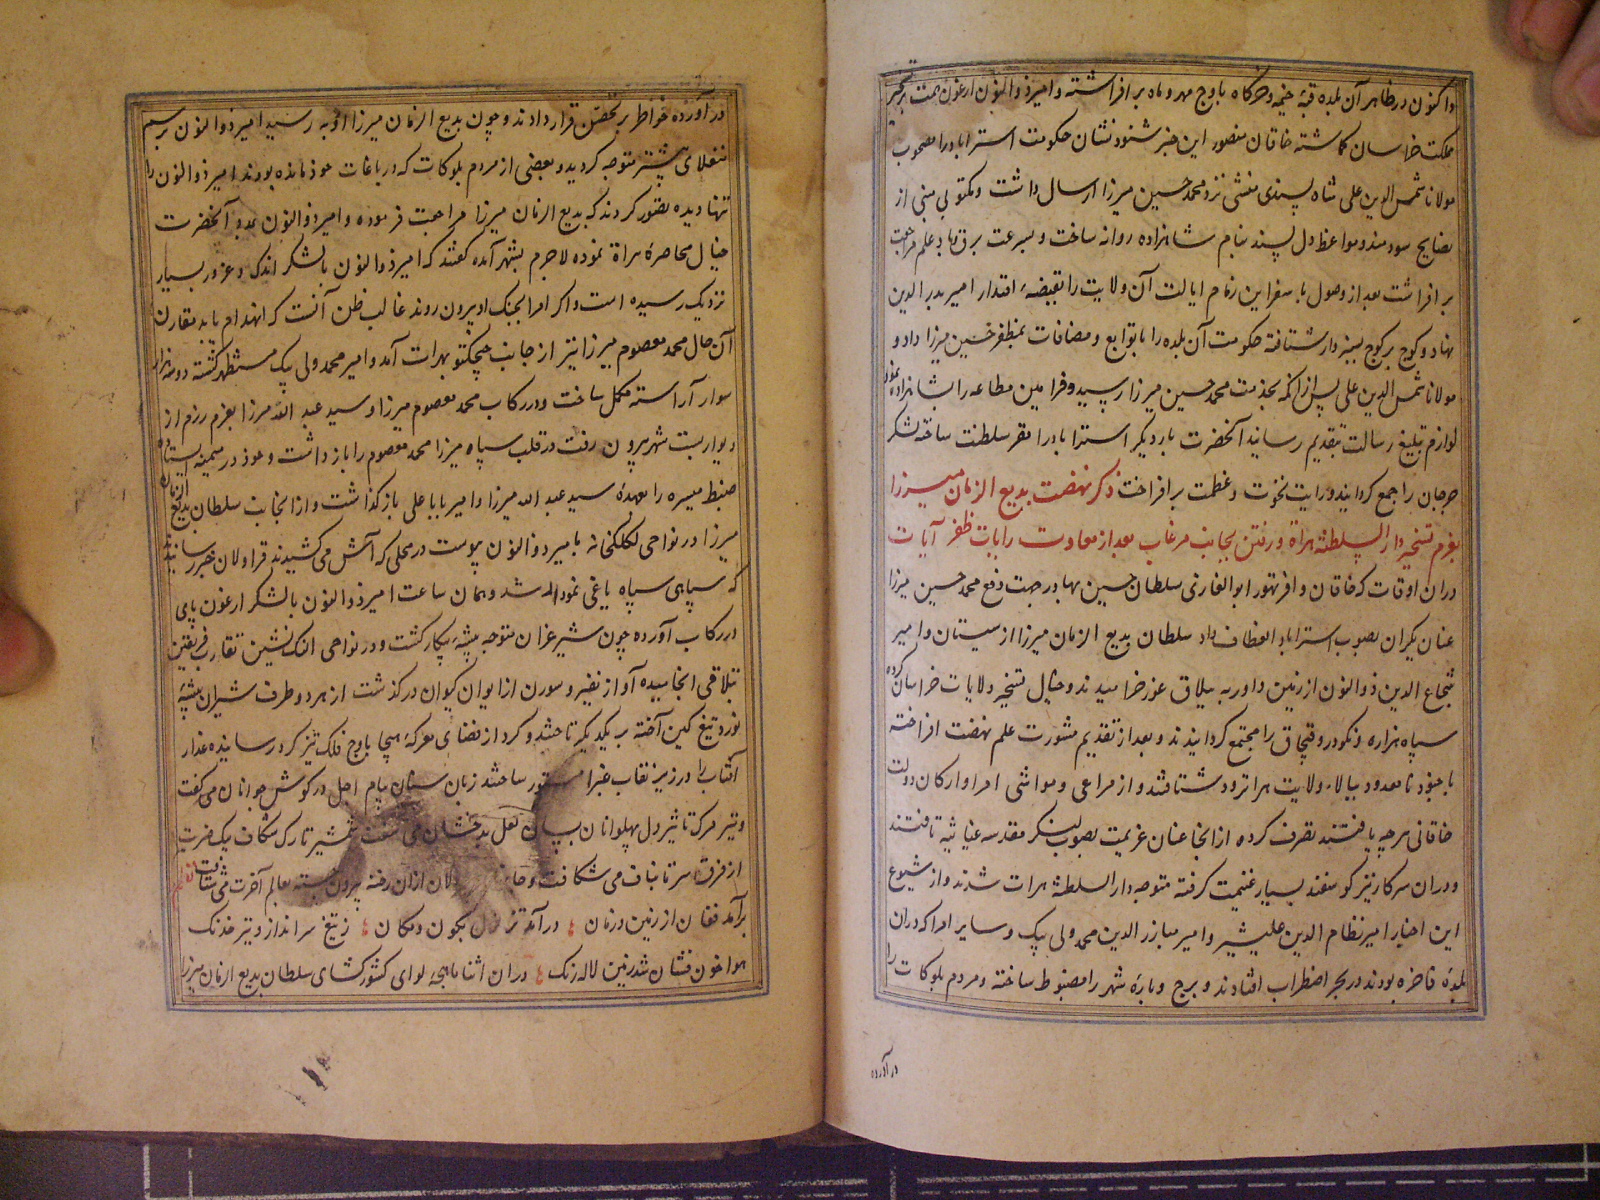 و اکنون در ظاهر آن بلده قبهٔ خیمه و خرگاه باوج مهر و ماه بر افراشته و امیر ذوالنون ارغون همت بر تسخیر
مملکت خراسان گماشته خاقان منصور این خبر شنوده نشان حکومت استراباد را مصحوب
مولانا شمس الدین علی شاه پسندی منشی نزد محمد حسین میرزا ارسال داشت و مکتوبی مبنی از
نصایح سودمند و مواعظ دل پسند بنام شاهزاده روانه ساخت و بسرعت برق و باد علم مراجعت
بر افراشت بعد از وصول باسفراین زمام ایالت آن ولایت را بقبضهٔ اقتدار امیر بدر الدین
نهاد و کوچ بر کوچ بسبزوار شتافته حکومت آن بلده را با توابع و مضافات بمظفر حسین میرزا داد و
مولانا شمس الدین علی پس از آنکه بخدمت محمد حسین میرزا رسید و فرامین مطاعه را بشاهزاده نمود
لوازم تبلیغ رسالت بتقدیم رسانید آنحضرت بار دیگر استراباد را مقر سلطنت ساخته لشکر
جرجان را جمع گردانید و رایت نخوت و عظمت بر افراخت ذکر نهضت بدیع الزمان میرزا
بعزم تسخیر دار السلطنه هراة و رفتن بجانب مرغاب بعد از معاودت رایات ظفر آیات
دران اوقات که خاقان وافر تهور ابوالغازی سلطان حسین بهادر جهت دفع محمد حسین میرزا
عنان یکران بصوب استراباد انعطاف داد سلطان بدیع الزمان میرزا از سیستان و امیر
شجاع الدین ذوالنون از زمین داور به ییلاق غور خرامیدند و خیال تسخیر ولایات خراسان کرده
سپاه هزاره و نکودر و قپچاق را مجتمع گردانیدند و بعد از تقدیم مشورت علم نهضت افراخته
با جنود نامعدود ببالاء ولایت هراترود شتافتند و از مراعی و مواشی امرا و ارکان دولت
خاقانی هرچه یافتند تصرف کرده از انجا عنان عزیمت بصوب لنکر مقدسه غیاثیه تافتند
و دران سرکار نیز گوسفند بسیار غنیمت گرفته متوجه دار السلطنه هرات شدند و از شیوع
این اخبار امیر نظام الدین علیشیر و امیر مبارز الدین محمد ولی بیک و سایر امرا که دران
بلدهٔ فاخره بودند در بحر اضطراب افتادند و برج و بارهٔ شهر را مضبوط ساخته و مردم بلوکات را
در آورده
در آورده خواطر بر تحصن قرار دادند و چون بدیع الزمان میرزا اوبه رسید امیر ذوالنون برسم
منغلای پیشتر متوجه گردید و بعضی از مردم بلوکات که در باغات خود مانده بودند امیر ذوالنون را
تنها دیده تصور کردند که بدیع الزمان میرزا مراجعت فرموده و امیر ذوالنون بمدد آنحضرت
خیال محاصرهٔ هراة نموده لاجرم بشهر آمده گفتند که امیر ذوالنون با لشکر اندک و غرور بسیار
نزدیک رسیده است و اکر امرا بجنک او بیرون روند غالب ظن آنست که انهدام یابد مقارن
آن حال محمد معصوم میرزا نیز از جانب چیچکتو بهرات آمد و امیر محمد ولی بیک مستظهر کشته دو سه هزار
سوار آراسته مکمل ساخت و در رکاب محمد معصوم میرزا و سید عبد الله میرزا بعزم رزم از
دیواربست شهر بیرون رفت در قلب سپاه میرزا محمد معصوم را باز داشت و خود در میمنه ایستاده
ضبط میسره را بعهدهٔ سید عبد الله میرزا و امیر بابا علی باز کذاشت و از انجانب سلطان بدیع الزمان
میرزا در نواحی لکلکخانه بامیر ذوالنون پیوست در محلی که آش می کشیدند قراولان خبر رسانیدند
که سیاهی سپاه یاغی نمودار شد و همان ساعت امیر ذوالنون با لشکر ارغون پای
در رکاب آورده چون شیر غران متوجه بیشهٔ پیکار کشت و در نواحی النک نشین تقارب فریقین
بتلاقی انجامیده آواز نفیر و سورن از ایوان کیوان در کذشت از هر دو طرف شیران بیشهٔ
نورد تیغ کین آخته بر یکدیکر تاختند و کرد از فضای معرکهٔ هیجا باوج فلک تیز کرد رسانیده عذار
آفتاب را در زیر نقاب غبرا مستور ساختند زبان سنان پیام اجل در کوش جوانان می گفت
و تیر مرک تاثیر دل پهلوانان بپیکان لعل بدخشان می سفت شمشیر تارک شکاف بیک ضربت
از فرق سر تا بناف می شکافت و جان ازان رخنه بیرون جسته بعالم آخرت می شتافت نظم
برآمد فغان از زمین و زمان در آمد تزلزل بکون و مکان ز تیغ سر انداز و تیر خدنک
هوا خون فشان شد زمین لاله رنک دران اثنا ماهچهٔ لوای کشورکشای سلطان بدیع الزمان میرزا